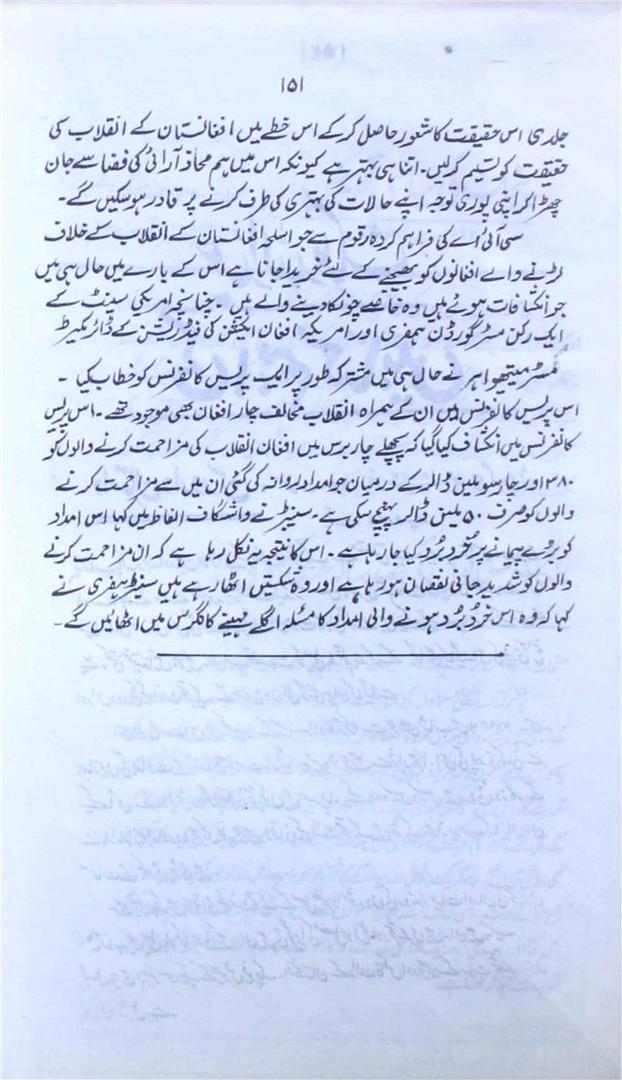 ۱۵۱
جلدی اس حقیقت کا شعور حاصل کر کے اس خطے میں افغانستان کے انقلاب کی
حقیقت کو تسلیم کرلیں۔ اتنا ہی بہتر ہے کیونکہ اس میں ہم محاذ آرائی کی فضا سے جان
چھڑا کر اپنی پوری توجہ اپنے حالات کی بہتری کی طرف کرنے پر قادر ہو سکیں گے۔
سی آئی اے کی فراہم کردہ رقوم سے جو اسلحہ افغانستان کے انقلاب کے خلاف
لڑنے والے افغانوں کو بھیجنے کے لئے خریدا جاتا ہے اس کے بارے میں حال ہی میں
جو انکشافات ہوئے ہیں وہ خاصے چونکا دینے والے ہیں۔ چنانچہ امریکی سینٹ کے
ایک رکن مسٹر گورڈن ہمفری اور امریکہ افغان ایکشن کی فیڈریشن کے ڈائریکیٹر
مسٹر میتھیو اہر نے حال ہی میں مشترکہ طور پر ایک پریس کانفرنس کو خطاب کیا۔
اس پریس کانفرنس میں ان کے ہمراہ انقلاب مخالف چار افغان بھی موجود تھے۔ اس پریس
کانفرنس میں انکشاف کیا گیا کہ پچھلے چار برس میں افغان انقلاب کی مزاحمت کرنے والوں کو
۳۸۰ اور چار سو ملین ڈالر کے درمیان جو امداد روانہ کی گئی ان میں سے مزاحمت کرنے
والوں کو صرف ۵۰ ملین ڈالر پہنچ سکی ہے۔ سنیٹر نے واشگاف الفاظ میں کہا اس امداد
کو بڑے پیمانے پر خُرد بُرد کیا جا رہا ہے۔ اس کا نتیجہ یہ نکل رہا ہے کہ ان مزاحمت کرنے
والوں کو شدید جانی نقصان ہو رہا ہے اور وہ شکستیں اٹھا رہے ہیں سنیٹر ہمفری نے
کہا کہ وہ اس خرد بُرد ہونے والی امداد کا مسئلہ اگلے مہینے کانگرس میں اٹھائیں گے۔